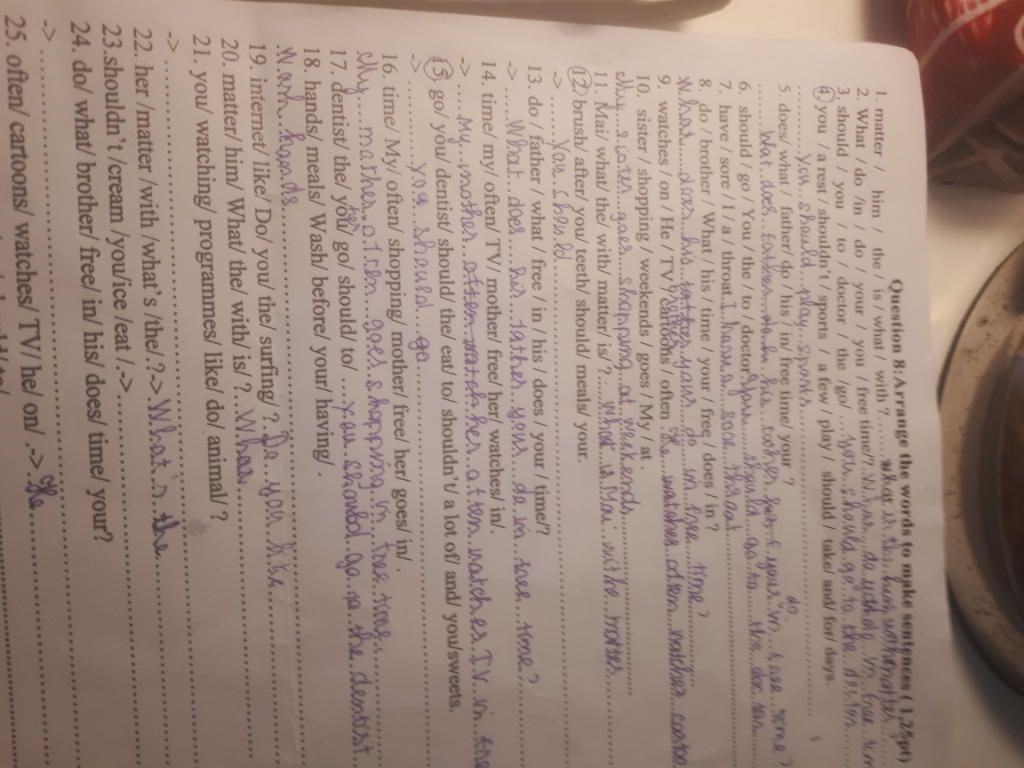 Question 8:Arrange the words to make sentences ( 1.25pt)
1. matter / him / the / is / what / with ?......What is the
2. What / do /in / do / your / you / free time/? What do you do in free tim
3 should / you / to / doctor / the /go/... you should go to the
4 you / a rest / shouldn't / sports / a few / play / should / take/ and/ for/ days.
......you should play sports
5. does/ what / father/ do / his / in/ free time/ your ?
do
......What does father his your in free time?
6. should / go / You / the / to / doctor You should go to the doctor
7. have / sore / I / a / throat I have a sore throat
8. do / brother / What / his / time / your / free / does / in ?
What does his your do in free time?
9. watches / on / He / TV / cartoons / often He watches often watches
10. sister / shopping / weekends / goes / My / at .
My sister goes shopping at weekends
11. Mai/ what/ the/ with/ matter/ is?.... What is Mai withe
12 brush/ after/ you/ teeth/ should/ meals/ your.
->......you should
13. do / father / what / free / in / his / does / your / time/?
->......What does his father your do in free time?
14. time/ my/ often/ TV/ mother/ free/ her/ watches/ in/
->....My mother her often watches TV in free
15 go/ you/ dentist/ should/ the/ eat/ to/ shouldn't/ a lot of/ and/ you/sweets.
->........you should go
16. time/ My/ often/ shopping/ mother/ free/ her/ goes/ in/ .
My mother often goes shopping in her free time
17. dentist/ the/ you/ go/ should/ to/ ....you should go to the dentist
18. hands/ meals/ Wash/ before/ your/ having/ .
Wash hands
19. internet/ like/ Do/ you/ the/ surfing/ ?.Do you like
20. matter/ him/ What/ the/ with/ is/ ?..What
21. you/ watching/ programmes/ like/ do/ animal/ ?
->
22. her /matter /with /what's /the/.?->What's the
23.shouldn't /cream /you/ice /eat /->
24. do/ what/ brother/ free/ in/ his/ does/ time/ your?
->
25. often/ cartoons/ watches/ TV/ he/ on/ .->.He